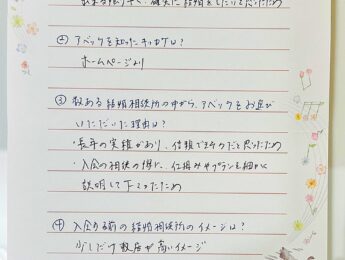 出来る限り早く、確実に結婚をしたいと思ったため
② アベックを知ったキッカケは？
ホームページより
③ 数ある結婚相談所の中から、アベックをお選び
いただいた理由は？
・長年の実績があり、信頼できそうだと思ったため
・入会の相談の際に、仕組みやプランを細かく
説明して下さったため
④ 入会する前の結婚相談所のイメージは？
少しだけ敷居が高いイメージ